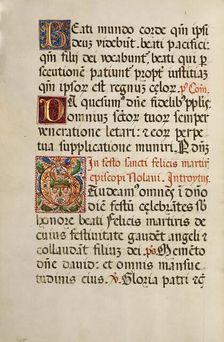 Beati mundo corde qm̄ ipsi
deuz videbunt. beati pacifici
qm̄ filij dei vocabunt̄. beati qui p
secutionem patiunt̄ propt̄ iustitiā
qm̄ ipsor̄ est regnuz celor̄. pꝰ Com̄.
Da quesum̄ dn̄e fidelibꝰ pplis
omniuz sctor̄ tuor̄ semper
veneratione letari: et eor̄ perpe
tua supplicatione muniri. P dn̄m
In festo sancti felicis martir̄
episcopi Nolani. Introytus.
Gaudeam̄ omnes ī dn̄o
diem festū celebrātes sb
honore beati Felicis martiris
de cuius festiuitate gaudēt angeli et
collaudant filium dei. ps̄. Memēto
dn̄e dauid: et omnis mansue
tudinis eius. ℣. Gloria patri et